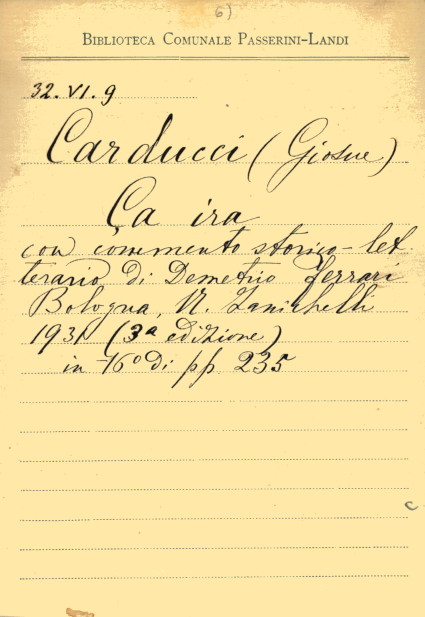 6)
BIBLIOTECA COMUNALE PASSERINI-LANDI
32.VI.9
Carducci (Giosue)
Ça ira
con commento storico-let-
terario di Demetrio Ferrari
Bologna, N. Zanichelli
1931 (3ª edizione)
in-16º di pp 235
c